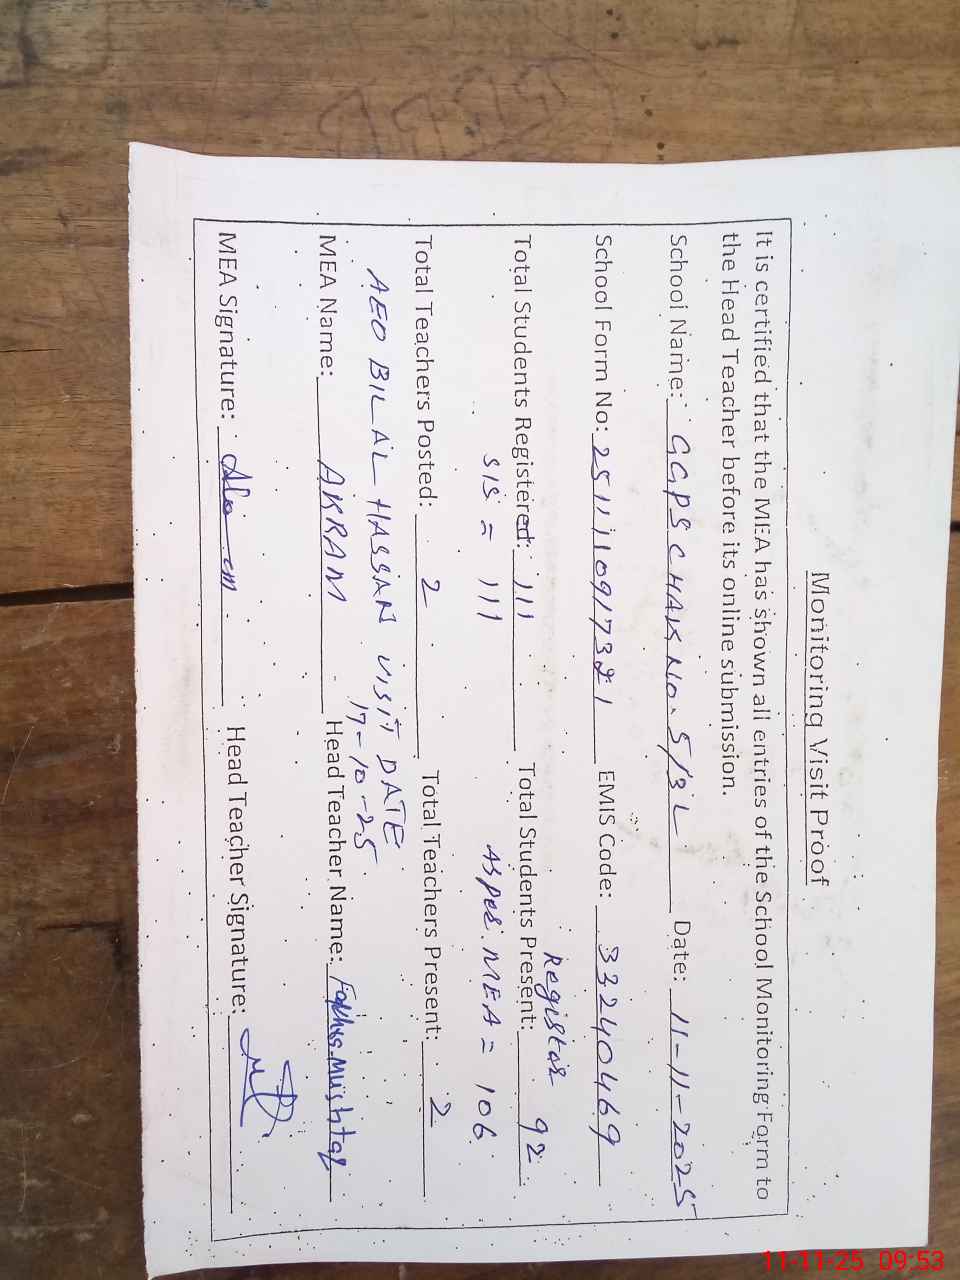 Monitoring Visit Proof
It is certified that the MEA has shown all entries of the School Monitoring Form to
the Head Teacher before its online submission.
School Name: GGPS CHAK NO. 5/3L Date: 11-11-2025
School Form No: 251111091732 1 EMIS Code: 33240469
Register
Total Students Registered: 111 Total Students Present: 92
SIS = 111 As per MEA = 106
Total Teachers Posted: 2 Total Teachers Present: 2
AEO BILAL HASSAN VISIT DATE
17-10-25
MEA Name: AKRAM Head Teacher Name: Fakhra Mushtaq
MEA Signature: Head Teacher Signature:
11-11-25 09:53